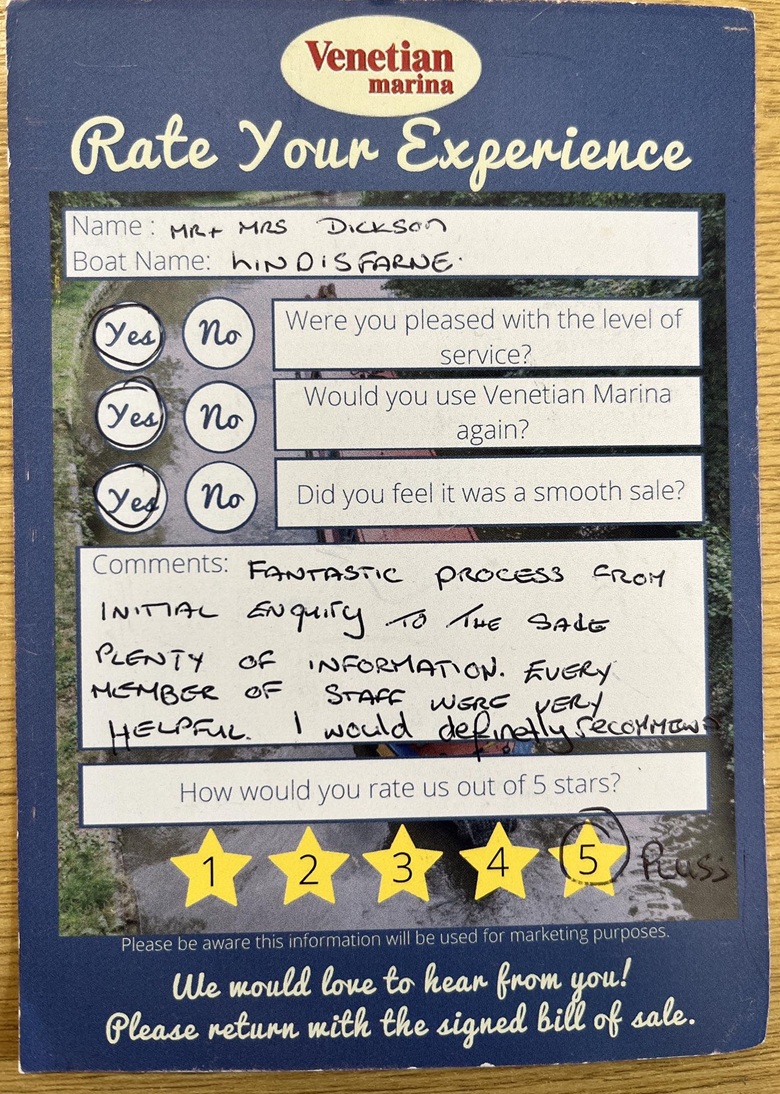 Venetian
marina
Rate Your Experience
Name : MR + MRS DICKSON
Boat Name: LINDISFARNE.
Yes No Were you pleased with the level of
service?
Yes No Would you use Venetian Marina
again?
Yes No Did you feel it was a smooth sale?
Comments: FANTASTIC PROCESS FROM
INITIAL ENQUIRY TO THE SALE
PLENTY OF INFORMATION. EVERY
MEMBER OF STAFF WERE VERY
HELPFUL. I would definetly recommend
How would you rate us out of 5 stars?
1 2 3 4 5 Pluss
Please be aware this information will be used for marketing purposes.
We would love to hear from you!
Please return with the signed bill of sale.